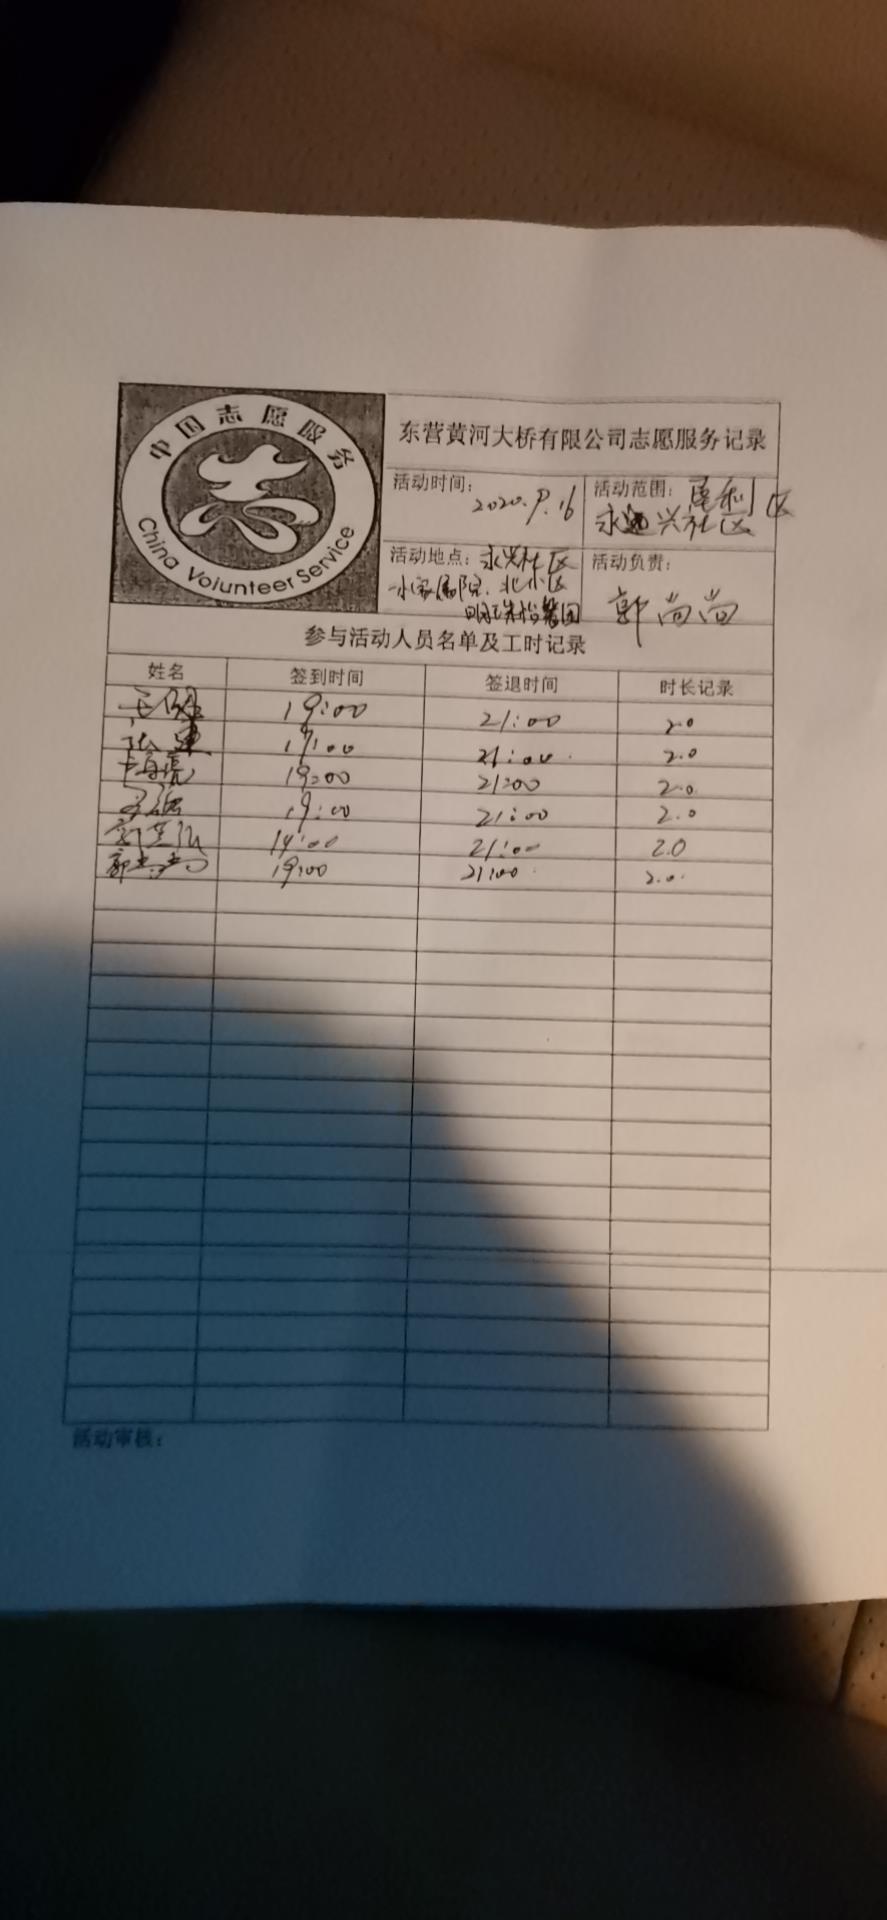 中国志愿服务
China Volunteer Service
东营黄河大桥有限公司志愿服务记录
活动时间: 2020.9.16
活动范围: 垦利区
永兴社区
活动地点: 永兴社区
北小区
活动负责: 郭尚尚
参与活动人员名单及工时记录
姓名 签到时间 签退时间 时长记录
19:00 21:00 2.0
19:00 21:00 2.0
19:00 21:00 2.0
19:00 21:00 2.0
19:00 21:00 2.0
郭尚尚 19:00 21:00 2.0
活动审核: